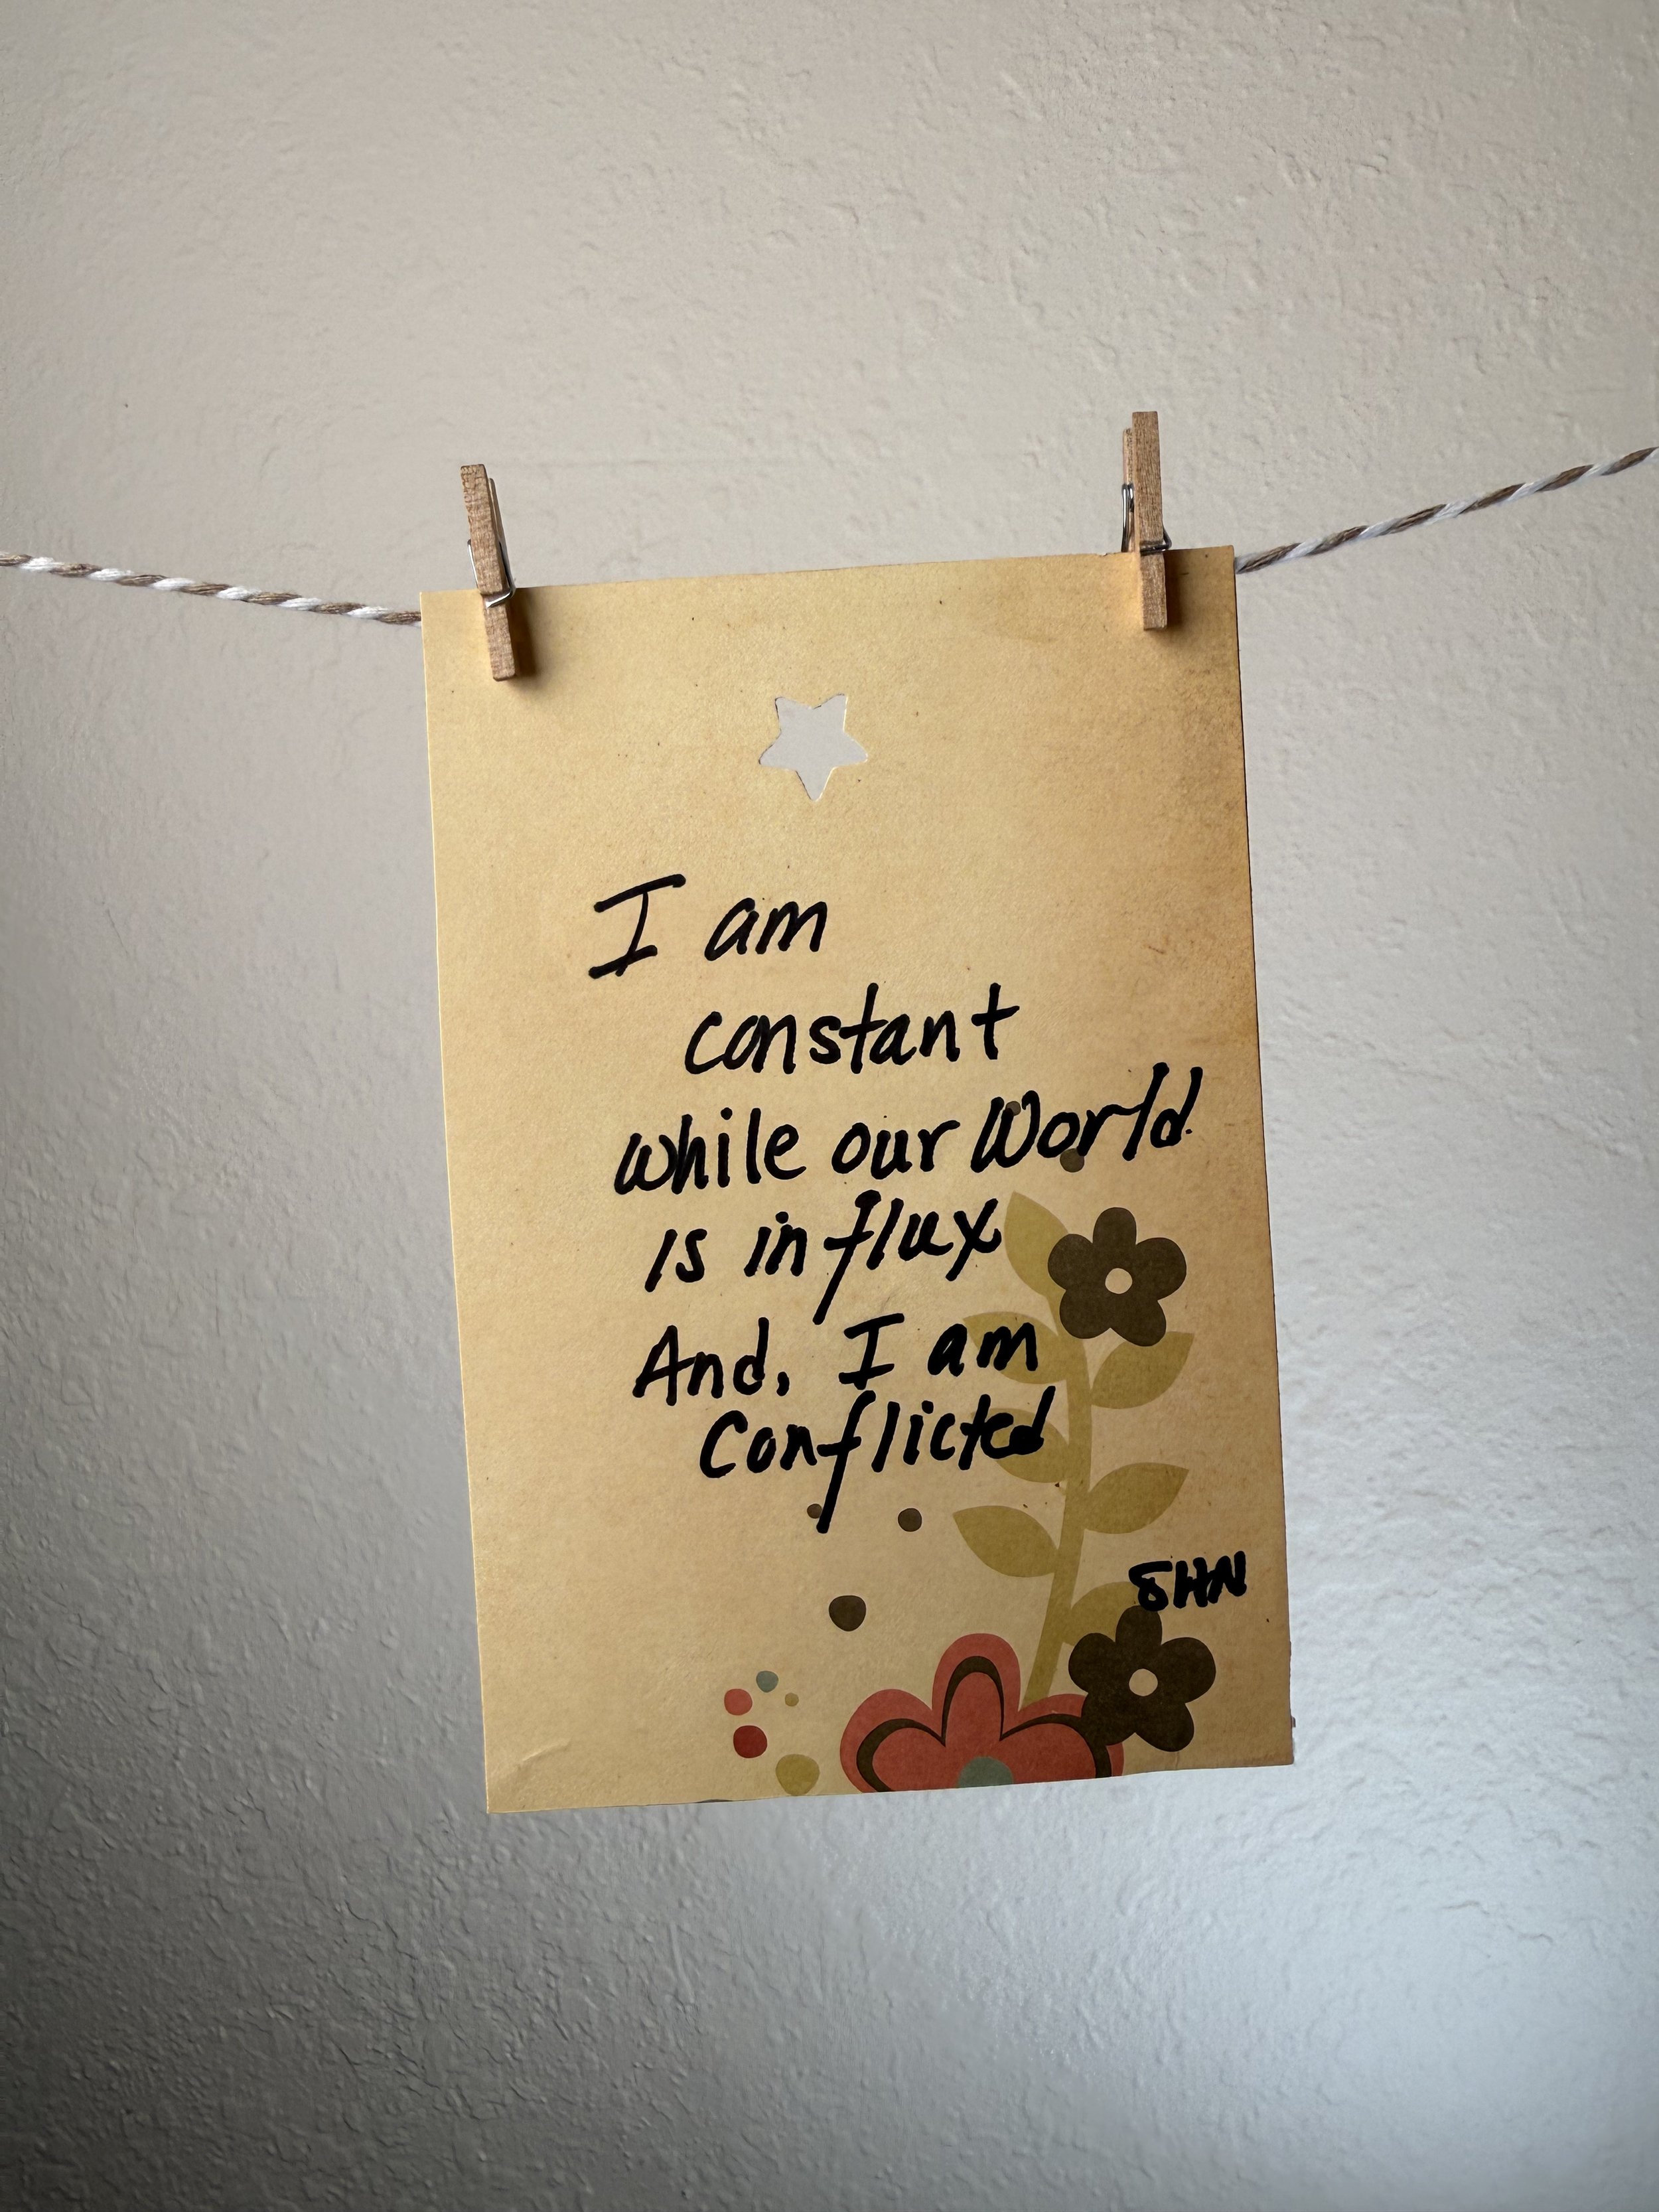 I am
constant
while our World
is in flux
And, I am
Conflicted
SHN